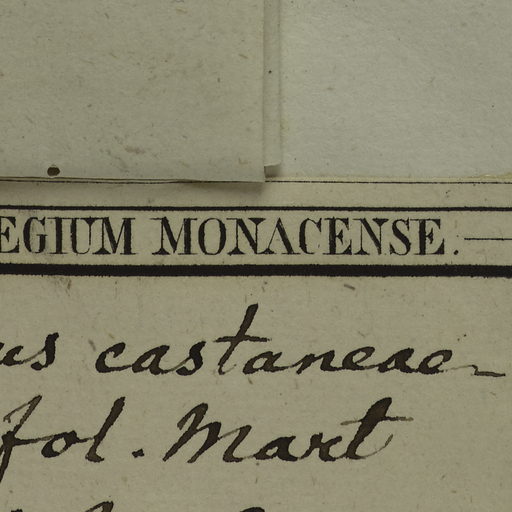 EGIUM MONACENSE.
us castaneae-
fol. Mart